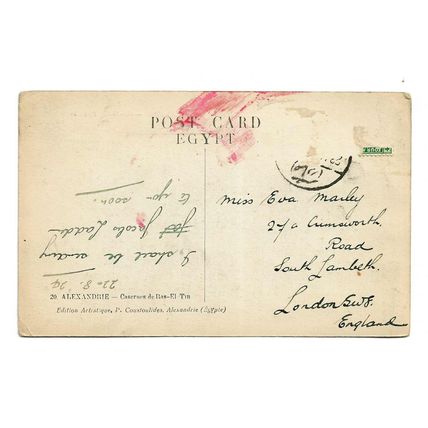 POST CARD
EGYPT
22-8-29
I shall be sending
Jacobs Ladder
to you soon.
Miss Eva Marley
27a Crimsworth
Road
South Lambeth.
London S.W.8.
England
20 ALEXANDRIE – Casernes de Ras-El Tin
Edition Artistique, P. Coustoulides, Alexandrie (Égypte)